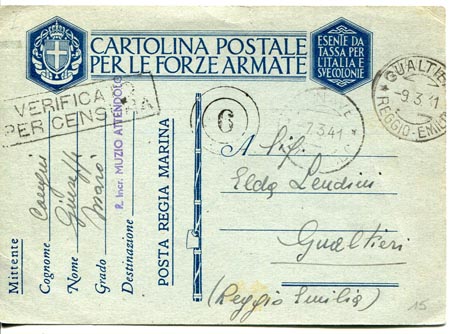 CARTOLINA POSTALE
PER LE FORZE ARMATE
ESENTE DA
TASSA PER
L'ITALIA E
SVE COLONIE
VERIFICA
PER CENSURA
GUALTIERI
9.3.41
* REGGIO-EMILIA *
6
7.3.41
POSTA REGIA MARINA
R. Incr. MUZIO ATTENDOLO
Mittente
Cognome
Nome Giuseppe
Grado Marò
Destinazione
A Sig.
Elda Lendini
Gualtieri
(Reggio Emilia)
15